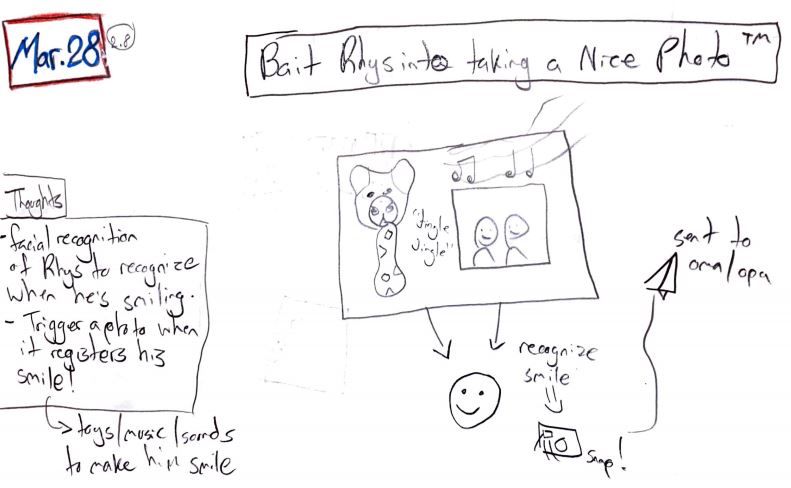 Mar.28
28
Bait Rhys into taking a Nice Photo™
Thoughts
- facial recognition
of Rhys to recognize
when he's smiling.
- Trigger a photo when
it registers his
smile!
→ toys/music/sounds
to make him smile
"Jingle
Jingle"
recognize
smile
snap!
sent to
oma/opa